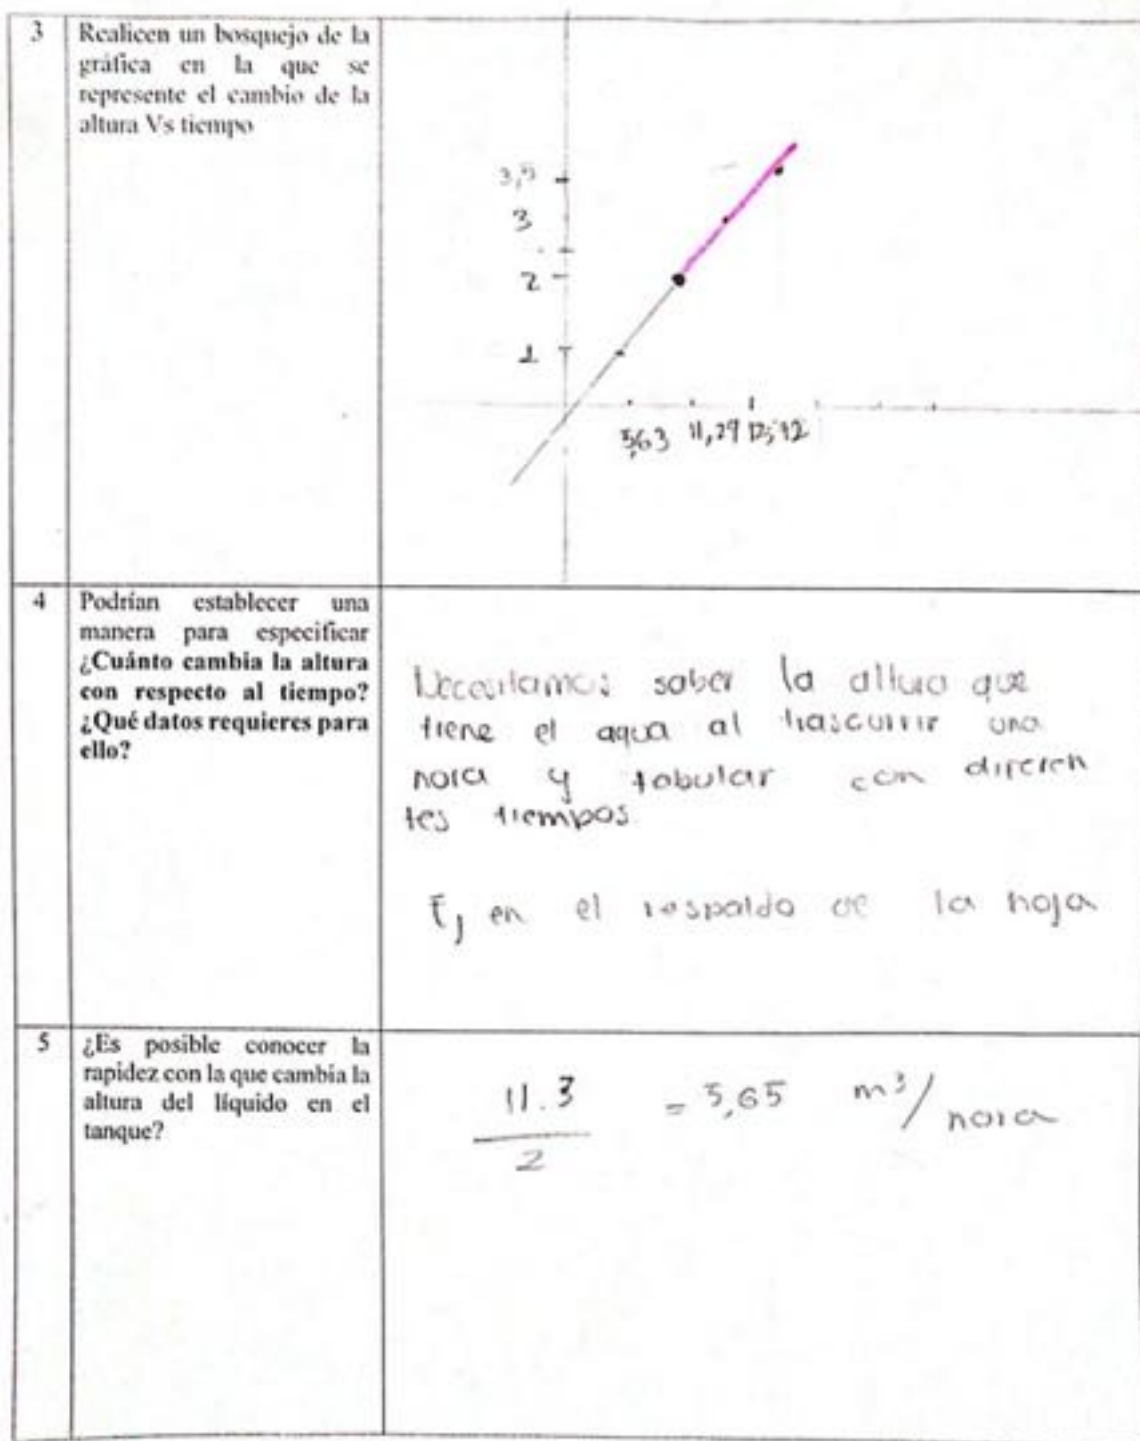 3
Realicen un bosquejo de la
gráfica en la que se
represente el cambio de la
altura Vs tiempo
3,5
3
2
1
5,63 11,29 12,92
4
Podrían establecer una
manera para especificar
¿Cuánto cambia la altura
con respecto al tiempo?
¿Qué datos requieres para
ello?
Necesitamos saber la altura que
tiene el agua al trascurrir una
hora y tabular con diferen
tes tiempos
Ej en el respaldo de la hoja
5
¿Es posible conocer la
rapidez con la que cambia la
altura del líquido en el
tanque?
11.3
2
= 5,65 m³/hora